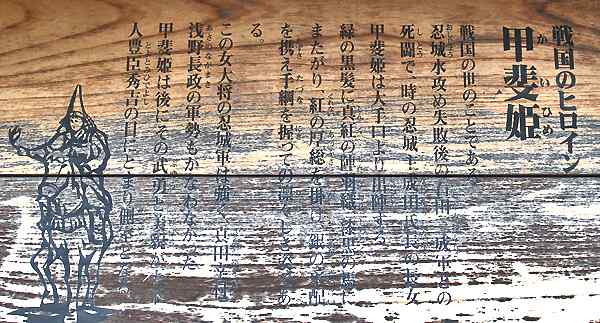 戦国のヒロイン
甲斐姫
かいひめ
戦国の世のことである
忍城水攻め失敗後の石田三成軍との
死闘で、時の忍城主成田氏長の長女
甲斐姫は大手口より出陣する
緑の黒髪に真紅の陣羽織 漆黒の馬に
またがり、紅の厚総を掛け、銀の采配
を携え手綱を握っての しさであ
る。
この女大将の忍城軍は強く、石田三成
浅野長政の軍勢もかなわなかった
甲斐姫は後にその武勇と美貌が
人豊臣秀吉の目にとまり側室となる